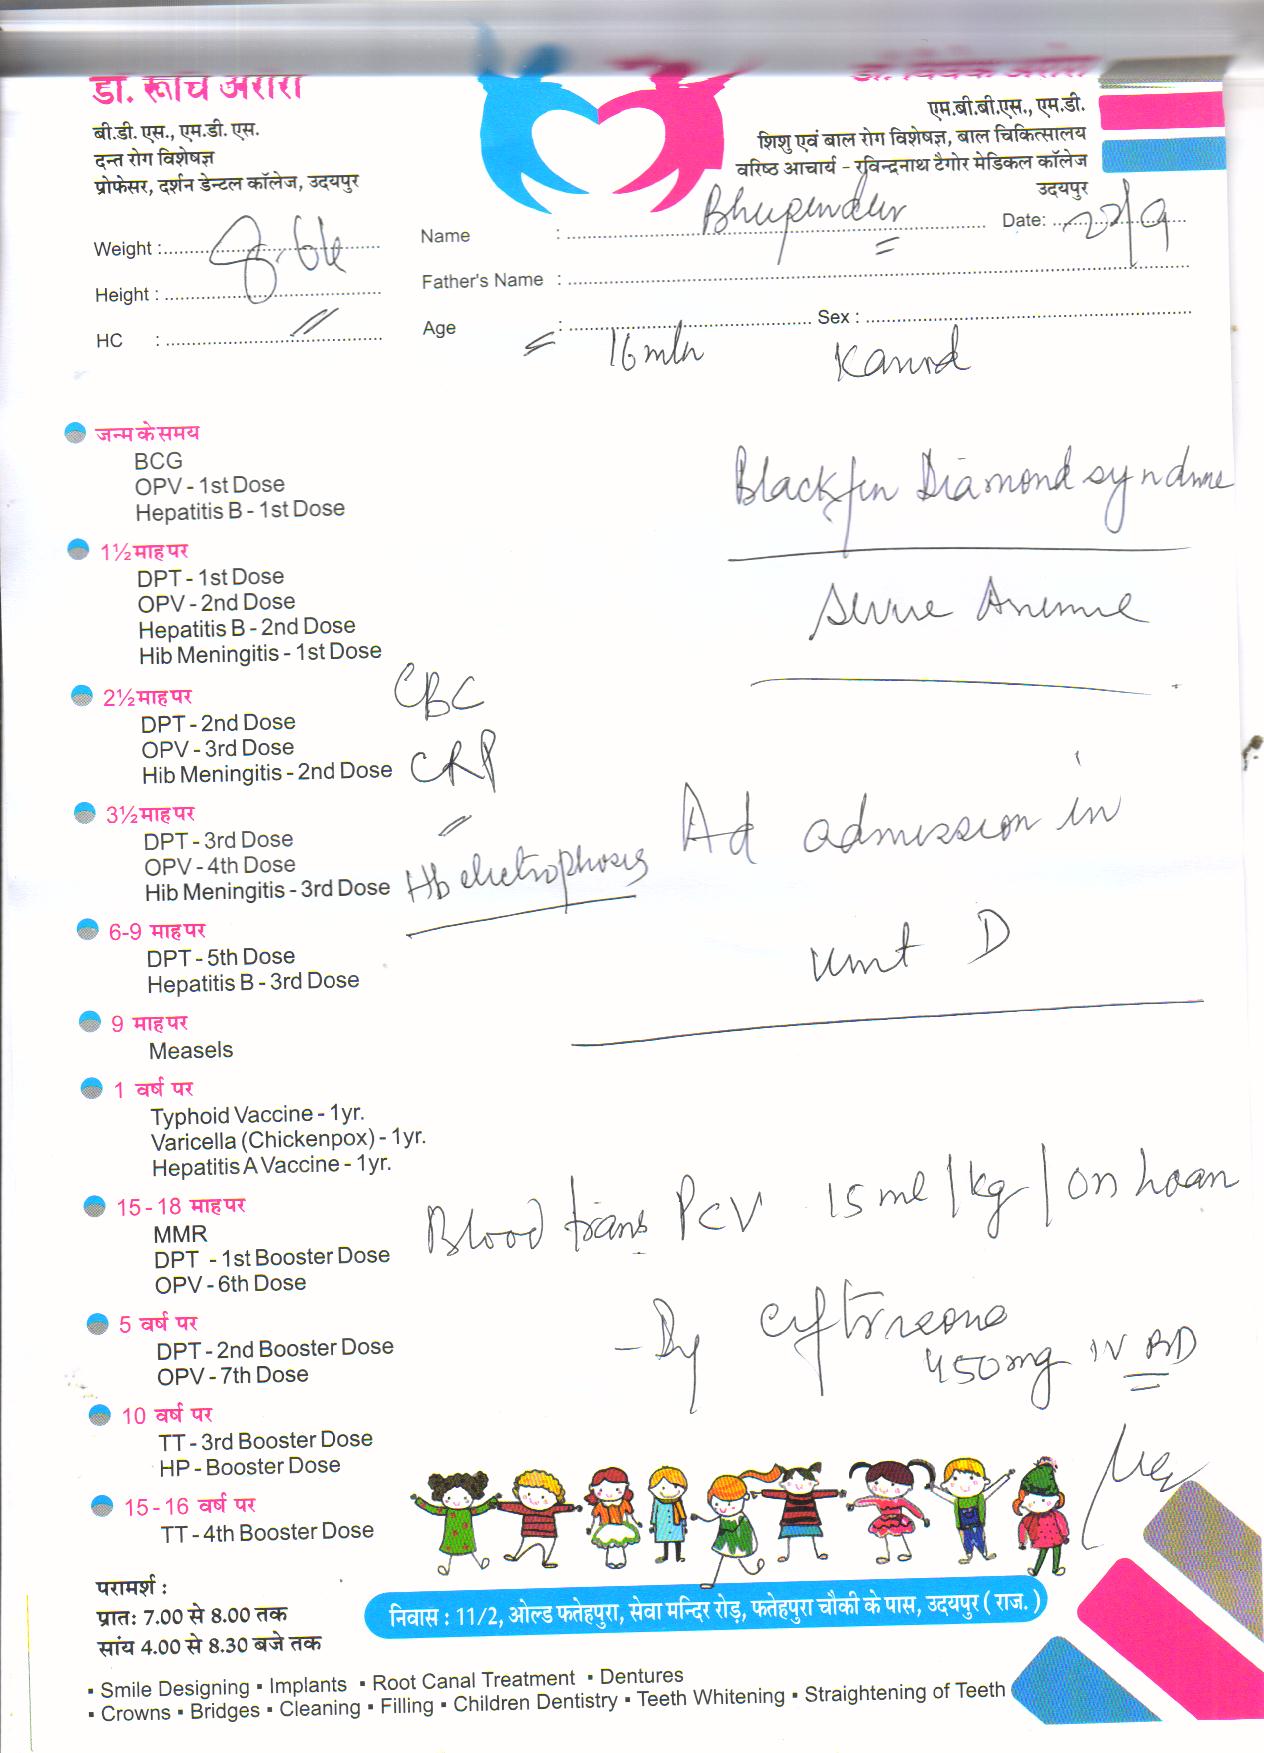 डॉ. रूचि अरोरा
बी.डी. एस., एम.डी. एस.
दन्त रोग विशेषज्ञ
प्रोफेसर, दर्शन डेन्टल कॉलेज, उदयपुर
डॉ. विवेक अरोरा
एम.बी.बी.एस., एम.डी.
शिशु एवं बाल रोग विशेषज्ञ, बाल चिकित्सालय
वरिष्ठ आचार्य - रविन्द्रनाथ टैगोर मेडिकल कॉलेज
उदयपुर
Weight :
Name : Bhupender Date: 22/9
Height :
Father's Name :
HC :
Age : 16 mth Sex :
जन्म के समय
BCG
OPV - 1st Dose
Hepatitis B - 1st Dose
Blackfen Diamond syndrome
1½ माह पर
DPT - 1st Dose
OPV - 2nd Dose
Hepatitis B - 2nd Dose
Hib Meningitis - 1st Dose
Severe Anemia
2½ माह पर
DPT - 2nd Dose
OPV - 3rd Dose
Hib Meningitis - 2nd Dose
CBC
CRP
3½ माह पर
DPT - 3rd Dose
OPV - 4th Dose
Hib Meningitis - 3rd Dose
Hb electrophosis
Ad admission in
unit D
6-9 माह पर
DPT - 5th Dose
Hepatitis B - 3rd Dose
9 माह पर
Measels
1 वर्ष पर
Typhoid Vaccine - 1yr.
Varicella (Chickenpox) - 1yr.
Hepatitis A Vaccine - 1yr.
15 - 18 माह पर
MMR
DPT - 1st Booster Dose
OPV - 6th Dose
Blood trans PCV 15 ml / kg /
5 वर्ष पर
DPT - 2nd Booster Dose
OPV - 7th Dose
450 mg IV BD
10 वर्ष पर
TT - 3rd Booster Dose
HP - Booster Dose
15 - 16 वर्ष पर
TT - 4th Booster Dose
परामर्श :
प्रातः 7.00 से 8.00 तक
सांय 4.00 से 8.30 बजे तक
निवास : 11/2, ओल्ड फतेहपुरा, सेवा मन्दिर रोड़, फतेहपुरा चौकी के पास, उदयपुर ( राज. )
▪ Smile Designing ▪ Implants ▪ Root Canal Treatment ▪ Dentures
▪ Crowns ▪ Bridges ▪ Cleaning ▪ Filling ▪ Children Dentistry ▪ Teeth Whitening ▪ Straightening of Teeth